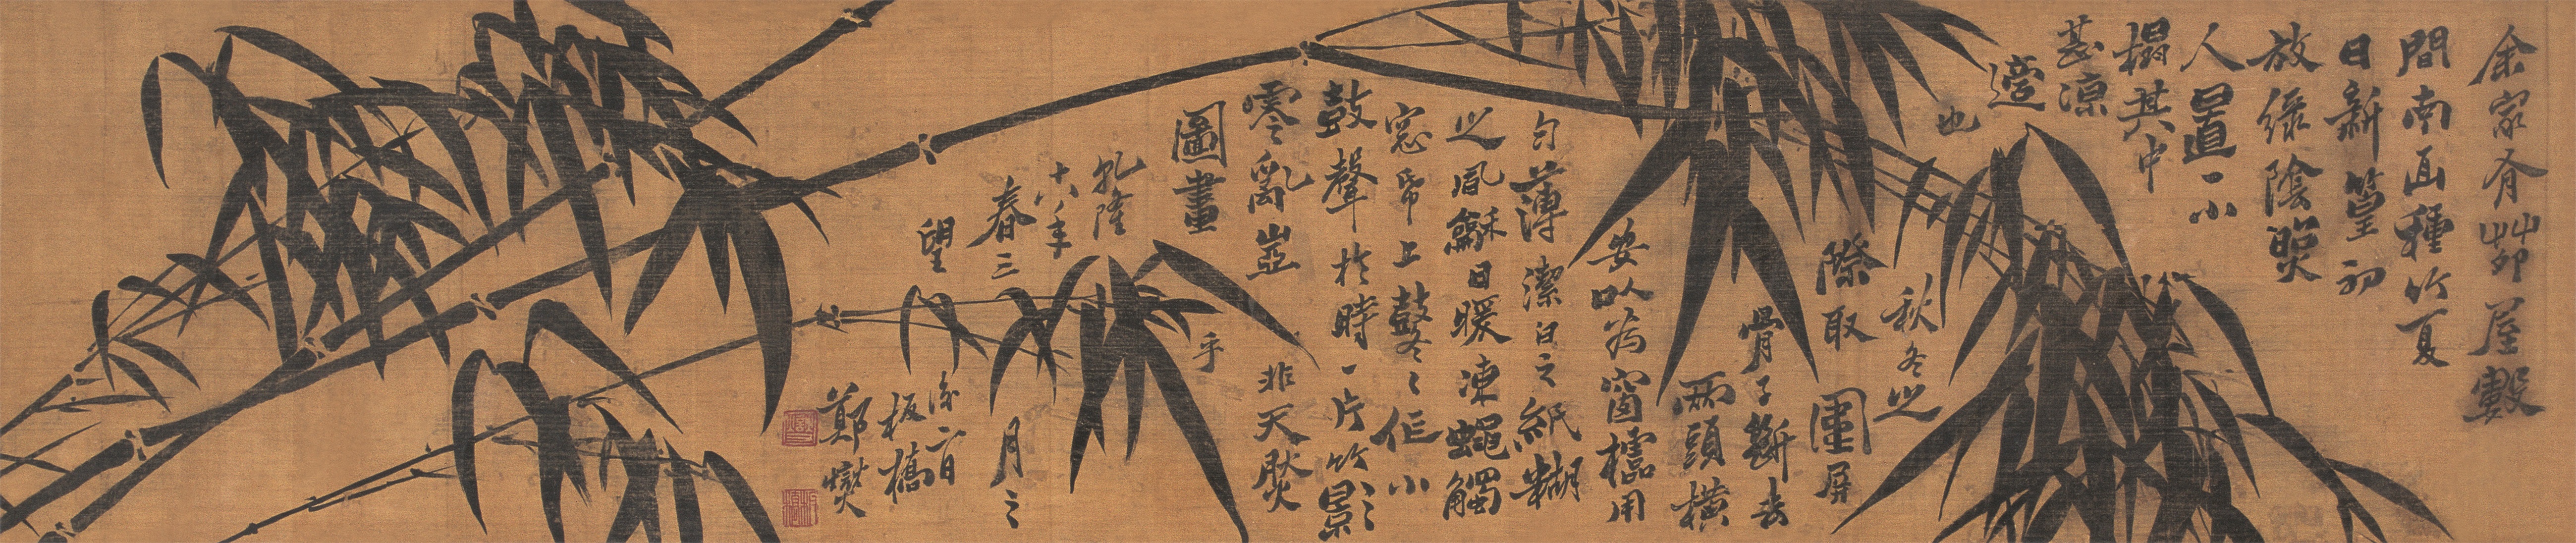 余家有茆屋數
間南面種竹夏
日新篁初
放綠陰照
人置一小
榻其中
甚涼
適
也
秋冬之
際取圍屏
骨子斷去
兩頭橫
安以為窗櫺用
勻薄潔白之紙糊
之風龢日暖凍蠅觸
窓帋上鼕々作小
鼓聲於時一片竹影
零亂豈非天然
圖畫乎
乾隆
十八年
春三月之
望後二日
板橋
鄭燮